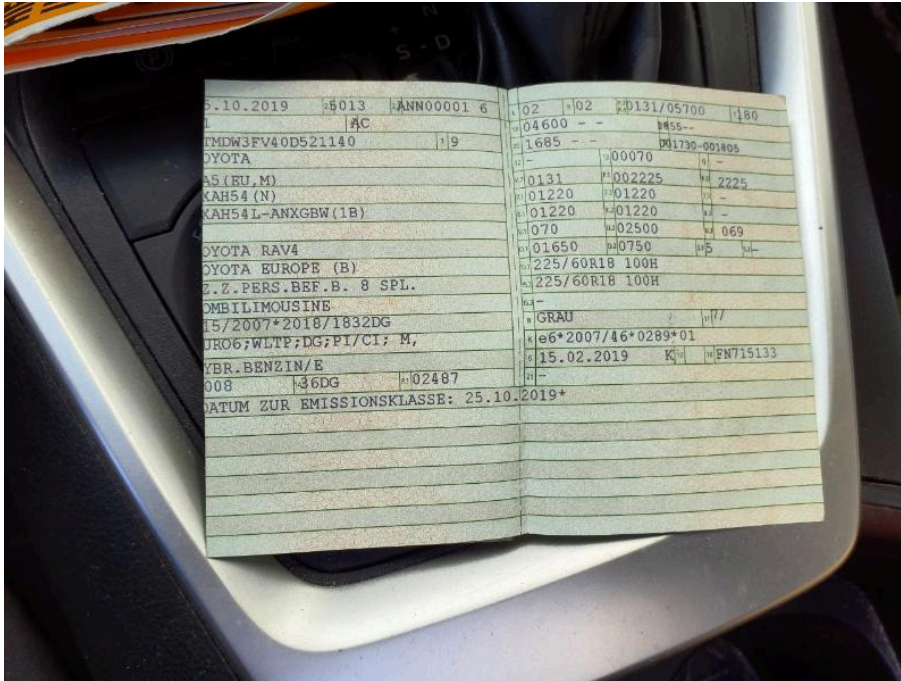 S - D
N
5.10.2019 5013 ANN00001 6
AC
TMDW3FV40D521140 9
OYOTA
A5(EU,M)
XAH54(N)
XAH54L-ANXGBW(1B)
OYOTA RAV4
OYOTA EUROPE (B)
Z.Z.PERS.BEF.B. 8 SPL.
OMBILIMOUSINE
15/2007*2018/1832DG
URO6;WLTP;DG;PI/CI; M,
YBR.BENZIN/E
008 36DG 02487
DATUM ZUR EMISSIONSKLASSE: 25.10.2019*
02 02 0131/05700 180
04600 - - 1855--
1685 - - 001730-001805
- 00070 -
0131 002225 2225
01220 01220 -
01220 01220 -
070 02500 069
01650 0750 5 -
225/60R18 100H
225/60R18 100H
-
GRAU 7/
e6*2007/46*0289*01
15.02.2019 K FN715133
-